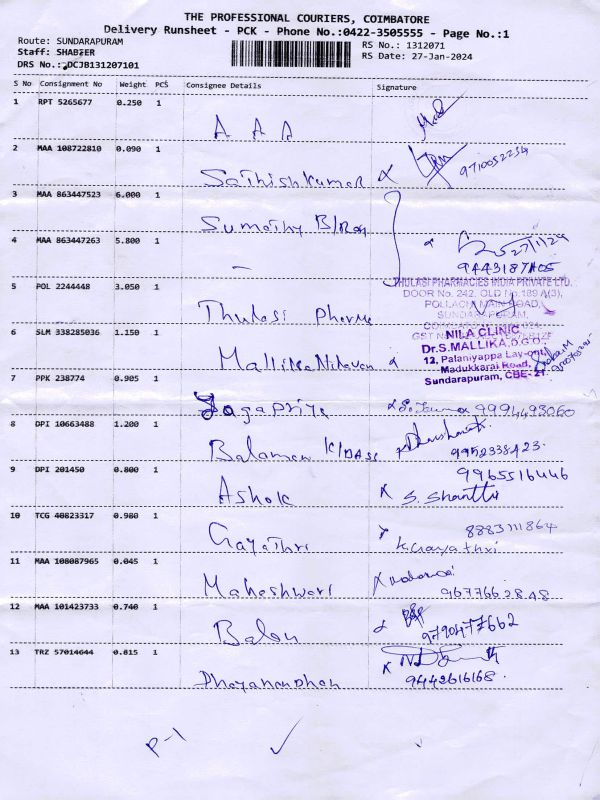 THE PROFESSIONAL COURIERS, COIMBATORE
Delivery Runsheet - PCK - Phone No.:0422-3505555 - Page No.:1
Route: SUNDARAPURAM
RS No.: 1312071
Staff: SHABEER
RS Date: 27-Jan-2024
DRS No.: DCJB131207101
S No Consignment No Weight PCS Consignee Details Signature
1 RPT 5265677 0.250 1
A A A
2 MAA 108722810 0.090 1
Sathishkumar 9710052234
3 MAA 863447523 6.000 1
Sumathy
4 MAA 863447263 5.800 1
- 27/1/24
5 POL 2244448 3.050 1
THULASI PHARMACIES INDIA PRIVATE LTD.
DOOR No. 242, OLD No.189 A(3),
POLLACHI MAIN ROAD,
SUNDARAPURAM,
Thulasi Pharma
6 SLM 338285036 1.150 1
NILA CLINIC
Dr.S.MALLIKA,D.G.O.,
12, Palaniyappa Lay-out,
Madukkarai Road,
Sundarapuram, CBE-21.
Mallika Nilavan
7 PPK 238774 0.905 1
Jagapriya 9994493060
8 DPI 10663488 1.200 1
Balaman K/DASS 9952338423
9 DPI 201450 0.800 1
9965516446
Ashok S. Shanthi
10 TCG 40823317 0.980 1
8883111864
Gayathri K. Gayathri
11 MAA 108087965 0.045 1
Maheshwari 9677662848
12 MAA 101423733 0.740 1
Balau 9790477662
13 TRZ 57014644 0.815 1
Dhayanandhan 9442616168
P-1